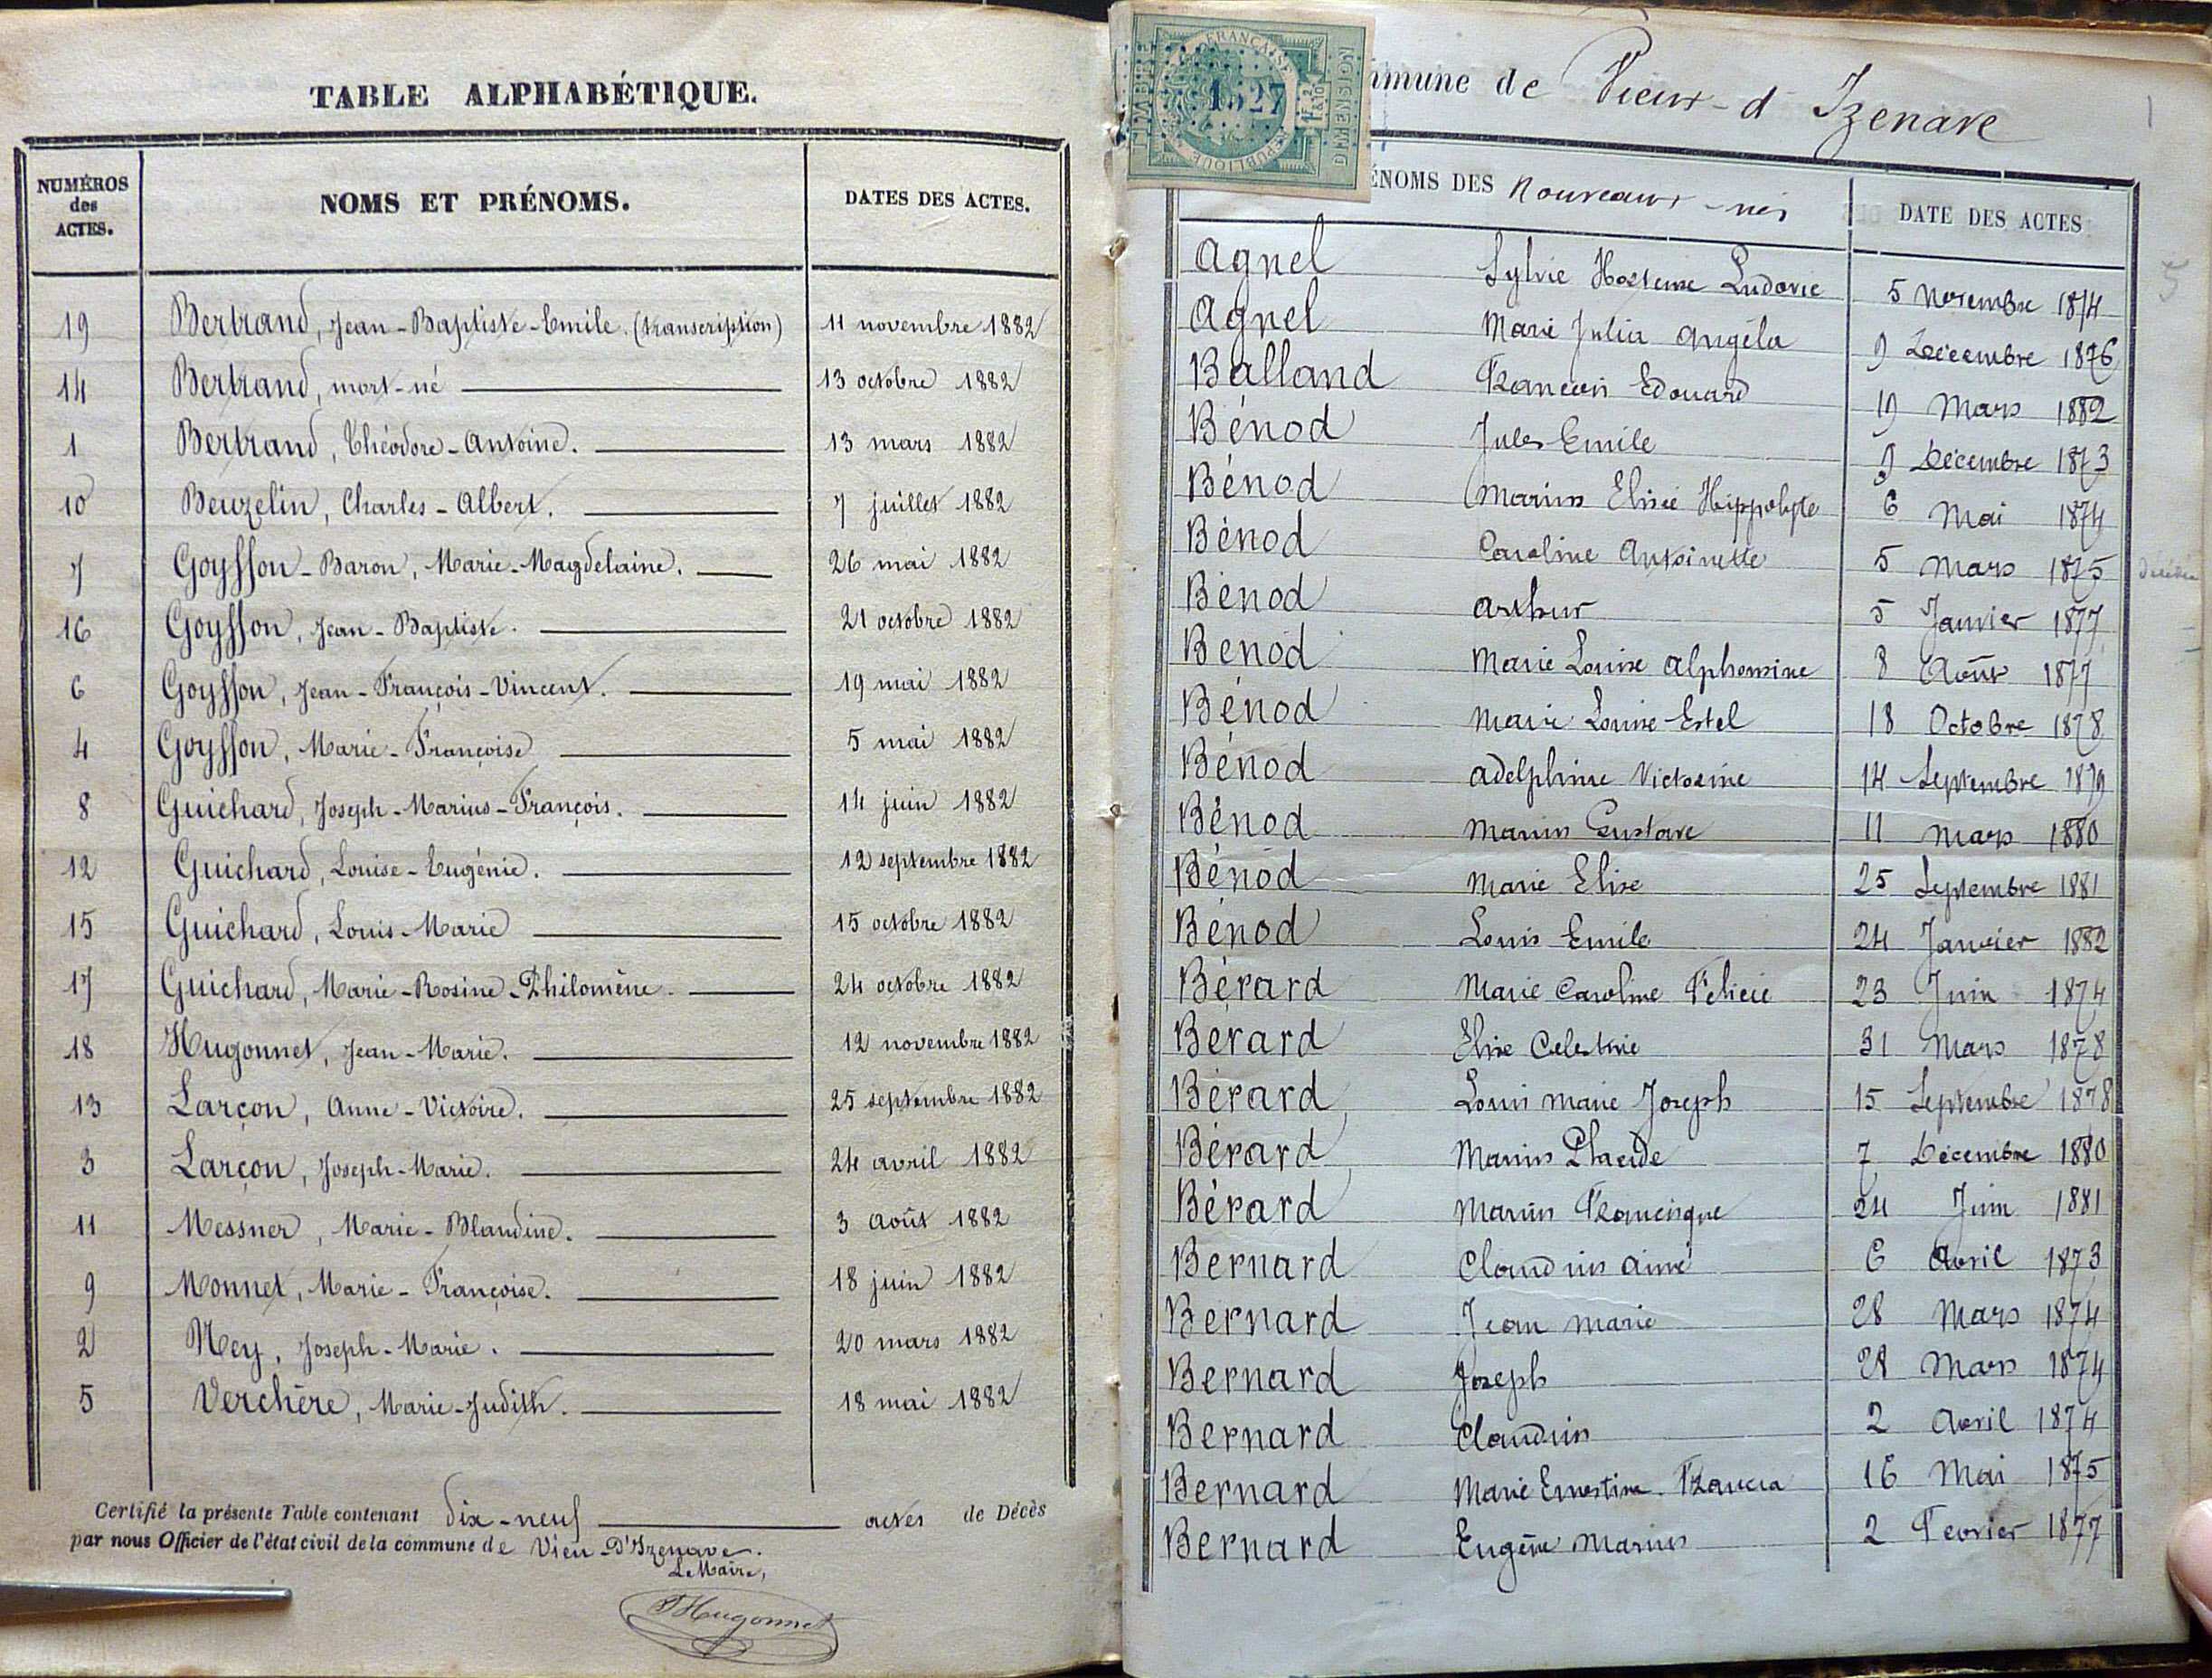 TABLE ALPHABÉTIQUE.
NUMÉROS des ACTES. NOMS ET PRÉNOMS. DATES DES ACTES.
19 Bertrand, Jean-Baptiste-Emile. (transcription) 11 novembre 1882
14 Bertrand, mort-né 13 octobre 1882
1 Bertrand, Théodore-Antoine. 13 mars 1882
10 Beuzelin, Charles-Albert. 7 juillet 1882
7 Goyffon-Baron, Marie-Magdelaine. 26 mai 1882
16 Goyffon, Jean-Baptiste. 21 octobre 1882
6 Goyffon, Jean-François-Vincent. 19 mai 1882
4 Goyffon, Marie-Françoise 5 mai 1882
8 Guichard, Joseph-Marius-François. 14 juin 1882
12 Guichard, Louise-Eugénie. 12 septembre 1882
15 Guichard, Louis-Marie 15 octobre 1882
17 Guichard, Marie-Rosine-Philomène. 24 octobre 1882
18 Hugonnet, Jean-Marie. 12 novembre 1882
13 Larçon, Anne-Victoire. 25 septembre 1882
3 Larçon, Joseph-Marie. 24 avril 1882
11 Messner, Marie-Blandine. 3 août 1882
9 Monnet, Marie-Françoise. 18 juin 1882
2 Ney, Joseph-Marie. 20 mars 1882
5 Verchère, Marie-Judith. 18 mai 1882
Certifié la présente Table contenant dix-neuf actes de Décès
par nous Officier de l'état civil de la commune de Vieu-D'Izenave.
Le Maire,
Hugonnet
FRANÇAISE
RÉPUBLIQUE
1527
DIMENSION
mmune de Vieux-d Izenave
ÉNOMS DES Nouveaux-nés DATE DES ACTES
5
Agnel Sylvie Ludovic 5 Novembre 1874
Agnel Marie Julia Angéla 9 Décembre 1876
Balland François Edouard 19 Mars 1882
Bénod Jules Emile 9 Décembre 1873
Bénod Marius Elisée Hippolyte 6 Mai 1874
Bénod Caroline Antoinette 5 Mars 1875
Bénod Arthur 5 Janvier 1877
Benod Marie Louise Alphonsine 8 Août 1877
Bénod Marie Louise Estel 18 Octobre 1878
Bénod Adelphine Victorine 14 Septembre 1879
Bénod Marius Gustave 11 Mars 1880
Bénod Marie Elise 25 Septembre 1881
Bénod Louis Emile 24 Janvier 1882
Bérard Marie Caroline Félicie 23 Juin 1874
Bérard Elise Celestine 31 Mars 1878
Bérard Louis Marie Joseph 15 Septembre 1878
Bérard Marius Placide 7 Décembre 1880
Bérard Marius Francisque 24 Juin 1881
Bernard Claudius Aimé 6 Avril 1873
Bernard Jean Marie 28 Mars 1874
Bernard Joseph 28 Mars 1874
Bernard Claudius 2 Avril 1874
Bernard Marie Ernestine Francia 16 Mai 1875
Bernard Eugène Marius 2 Fevrier 1877